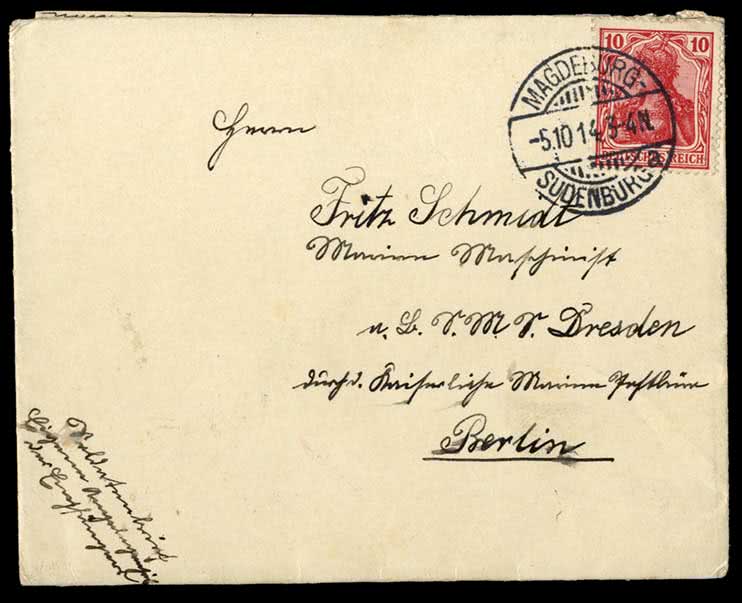 10 10
DEUTSCHES REICH
MAGDEBURG-
-5.10.14. 3-4N.
SUDENBURG a
Herrn
Fritz Schmidt
Marine Maschinist
a. B. S. M. S. Dresden
durch d. Kaiserliche Marine Postbüro
Berlin
Soldatenbrief
Eigene Angelegenheit
des Empfängers